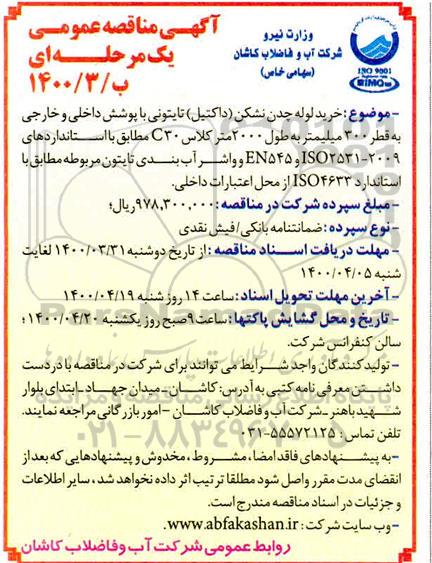 آگهی مناقصه عمومی
یک مرحله‌ای
ب/۱۴۰۰/۳
وزارت نیرو
شرکت آب و فاضلاب کاشان
(سهامی خاص)
ISO 9001
IMQ
- موضوع: خرید لوله چدن نشکن (داکتیل) تایتونی با پوشش داخلی و خارجی
به قطر ۳۰۰ میلیمتر به طول ۲۰۰۰متر کلاس C۳۰ مطابق با استانداردهای
ISO۲۵۳۱-۲۰۰۹ و EN۵۴۵ و واشر آب بندی تایتون مربوطه مطابق با
استاندارد ISO۴۶۳۳ از محل اعتبارات داخلی.
- مبلغ سپرده شرکت در مناقصه: ۹۷۸,۳۰۰,۰۰۰ریال؛
- نوع سپرده: ضمانتنامه بانکی/فیش نقدی
- مهلت دریافت اسناد مناقصه: از تاریخ دوشنبه ۱۴۰۰/۰۳/۳۱ لغایت
شنبه ۱۴۰۰/۰۴/۰۵
- آخرین مهلت تحویل اسناد: ساعت ۱۴ روز شنبه ۱۴۰۰/۰۴/۱۹
- تاریخ و محل گشایش پاکتها: ساعت ۹صبح روز یکشنبه ۱۴۰۰/۰۴/۲۰؛
سالن کنفرانس شرکت.
- تولید کنندگان واجد شرایط می توانند برای شرکت در مناقصه با در دست
داشتن معرفی نامه کتبی به آدرس: کاشان-میدان جهاد-ابتدای بلوار
شهید باهنر-شرکت آب و فاضلاب کاشان - امور بازرگانی مراجعه نمایند.
تلفن تماس: ۵۵۵۷۲۱۲۵-۰۳۱
- به پیشنهادهای فاقد امضا، مشروط، مخدوش و پیشنهادهایی که بعد از
انقضای مدت مقرر واصل شود مطلقا ترتیب اثر داده نخواهد شد، سایر اطلاعات
و جزئیات در اسناد مناقصه مندرج است.
- وب سایت شرکت: www.abfakashan.ir
روابط عمومی شرکت آب وفاضلاب کاشان